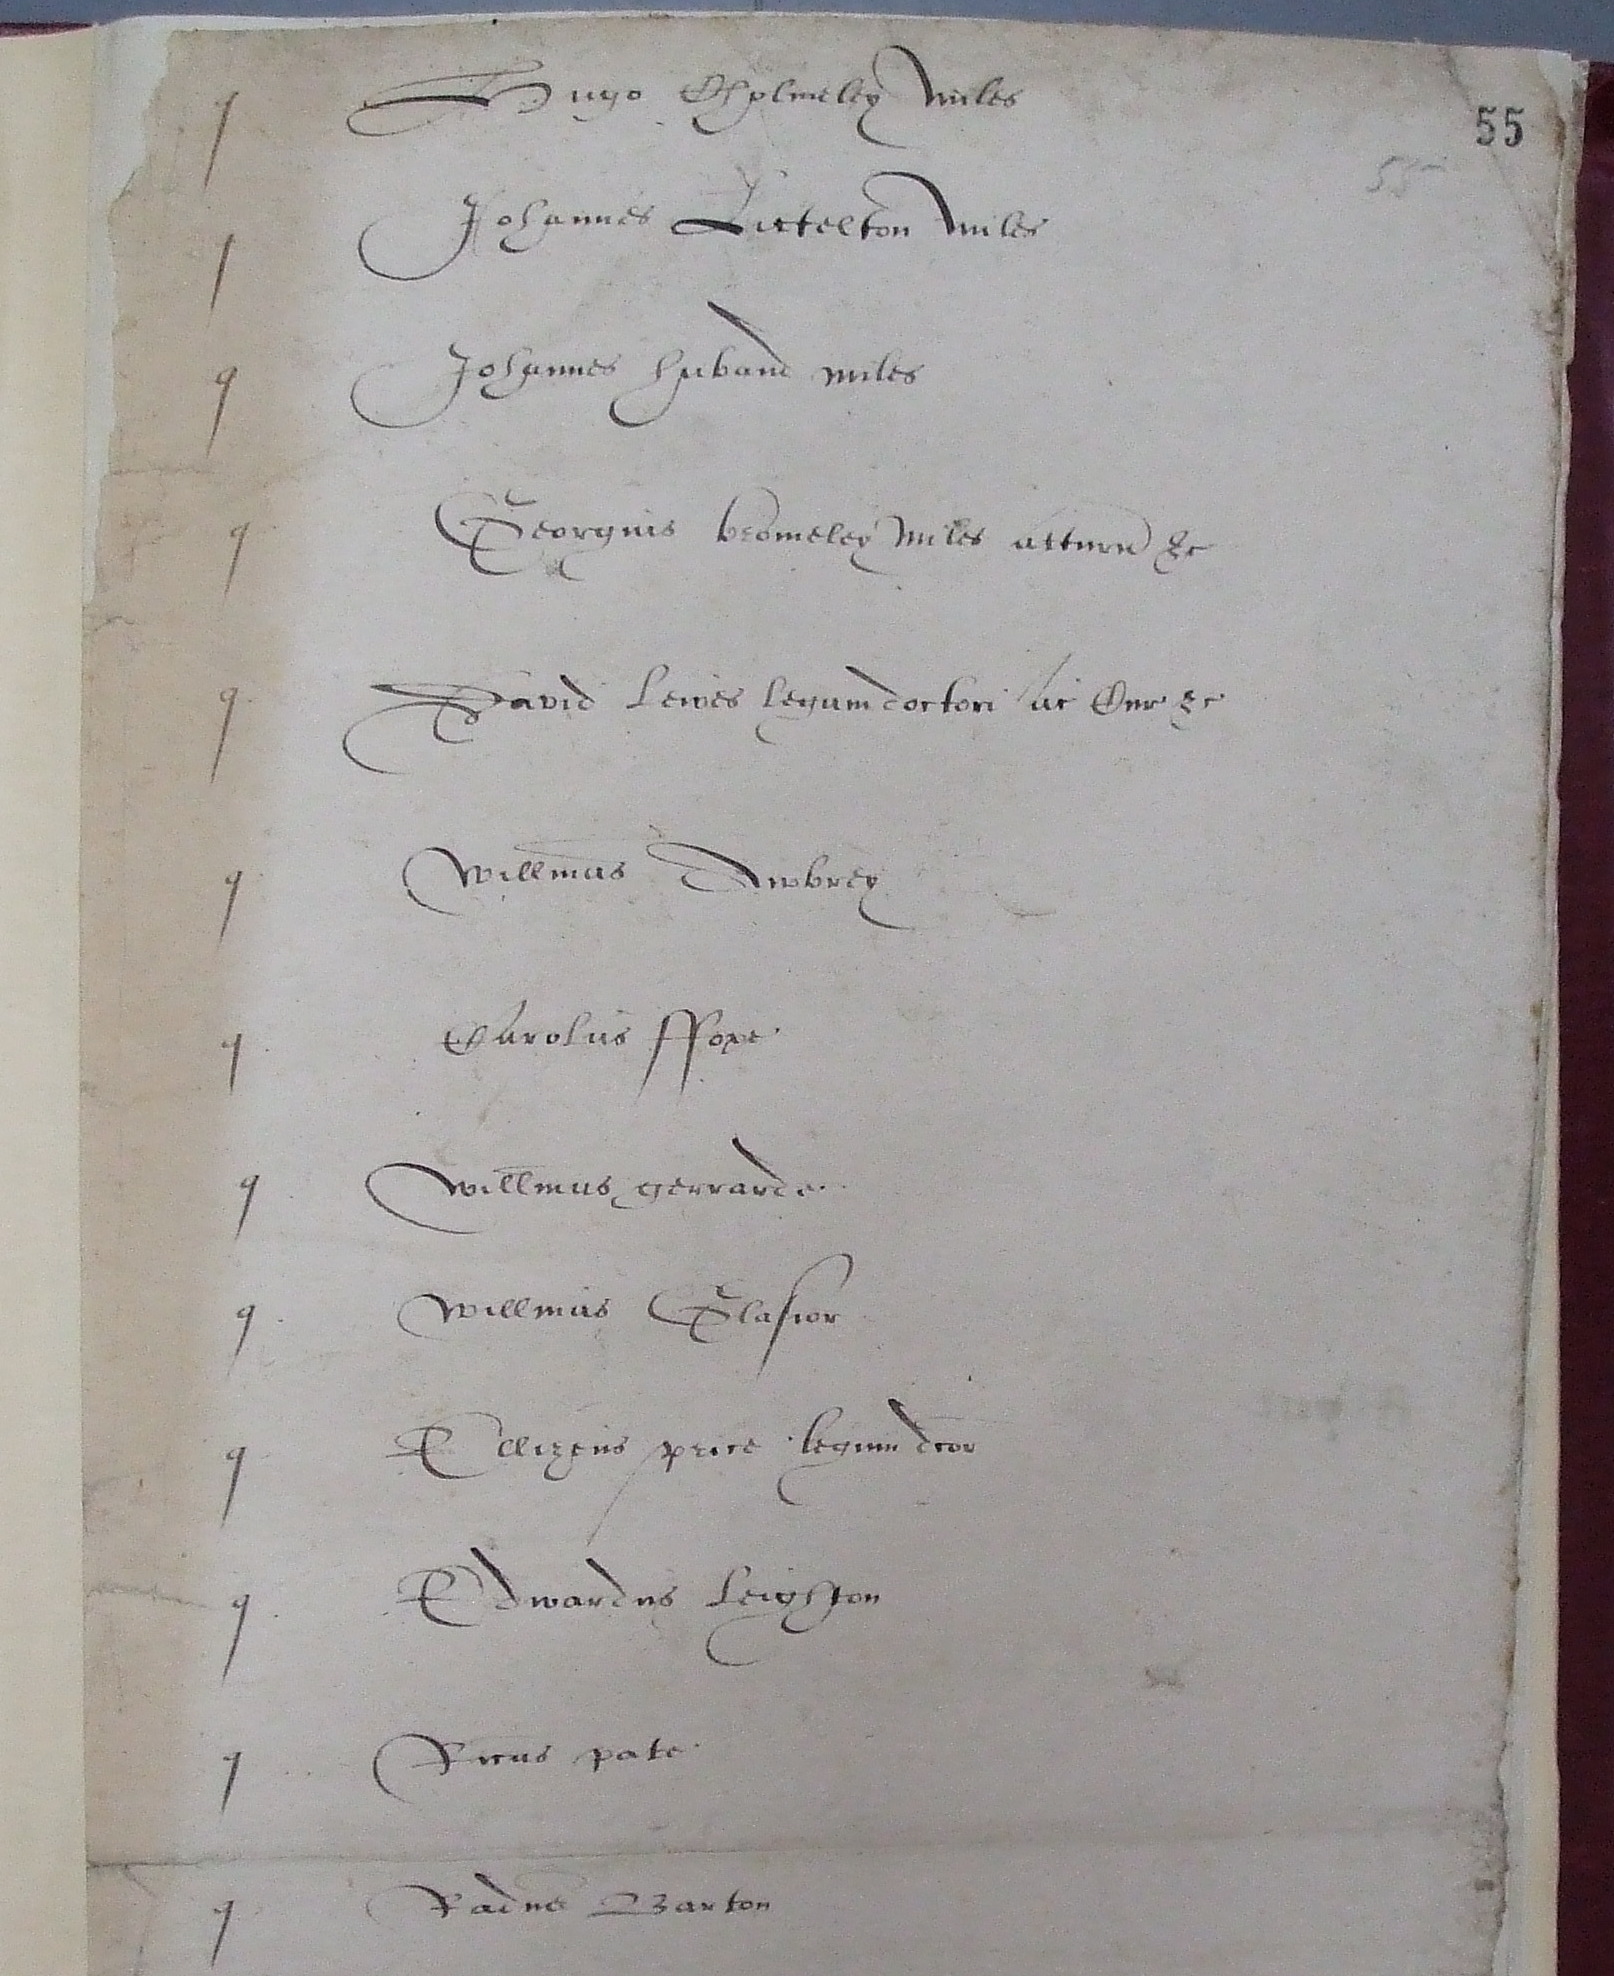 Hugo Cholmeley Miles
55
55
Johannes Littelton Miles
Johannes huband miles
Georgius bromeley Miles atturn &c
David Lewes legum doctori ac &c
Willmus Awbrey
Carolus ffoxe
Willmus gerrarde
Willmus Glasior
Ellizeus price legum dcor
Edwardus Leighton
Ricus pate
Radus Barton